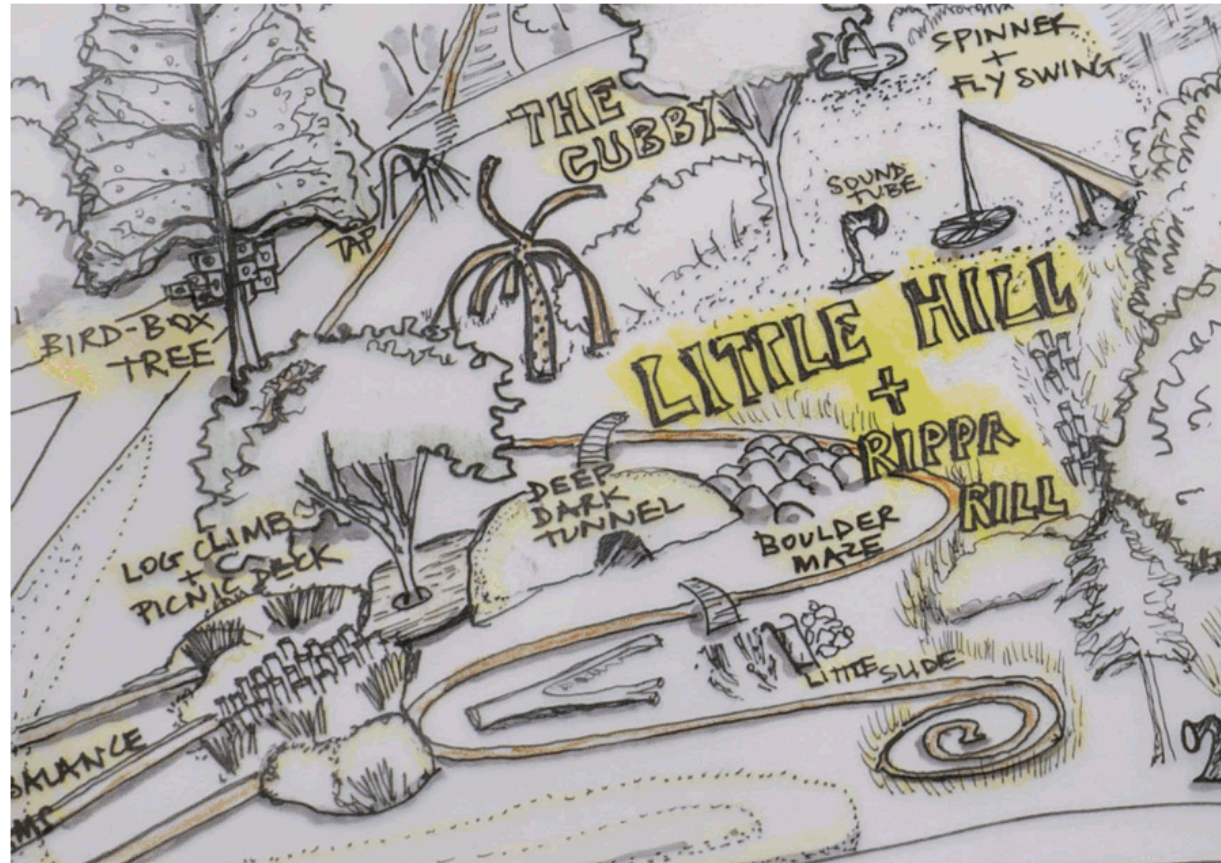 SPINNER
+
FLY SWING
THE
CUBBY
SOUND
TUBE
TAP
BIRD-BOX
TREE
LITTLE HILL
+
RIPPA
RILL
DEEP
DARK
TUNNEL
BOULDER
MAZE
LOG CLIMB
+
PICNIC DECK
LITTLE SLIDE
BALANCE